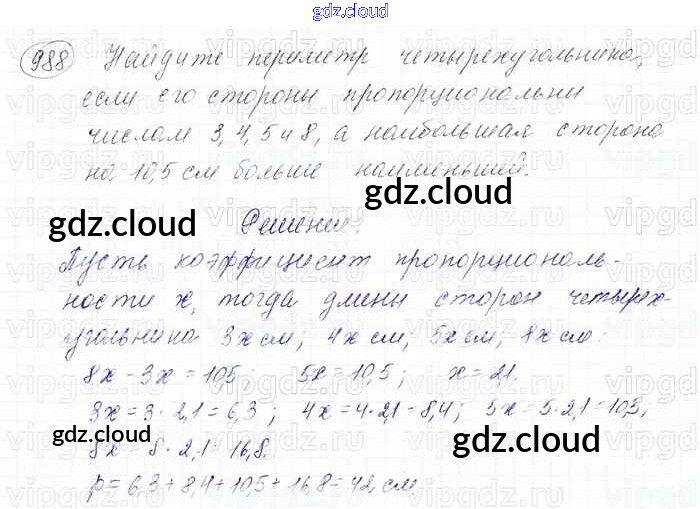 gdz.cloud
988 Найдите периметр четырехугольника,
если его стороны пропорциональны
числам 3, 4, 5 и 8, а наибольшая сторона
на 10,5 см больше наименьшей.
gdz.cloud
gdz.cloud
Решение.
Пусть коэффициент пропорциональ-
ности x, тогда длины сторон четырех-
угольника 3x см, 4x см, 5x см, 8x см.
8x - 3x = 10,5; 5x = 10,5; x = 2,1.
3x = 3 · 2,1 = 6,3; 4x = 4 · 2,1 = 8,4; 5x = 5 · 2,1 = 10,5;
gdz.cloud
gdz.cloud
8x = 8 · 2,1 = 16,8.
p = 6,3 + 8,4 + 10,5 + 16,8 = 42 см